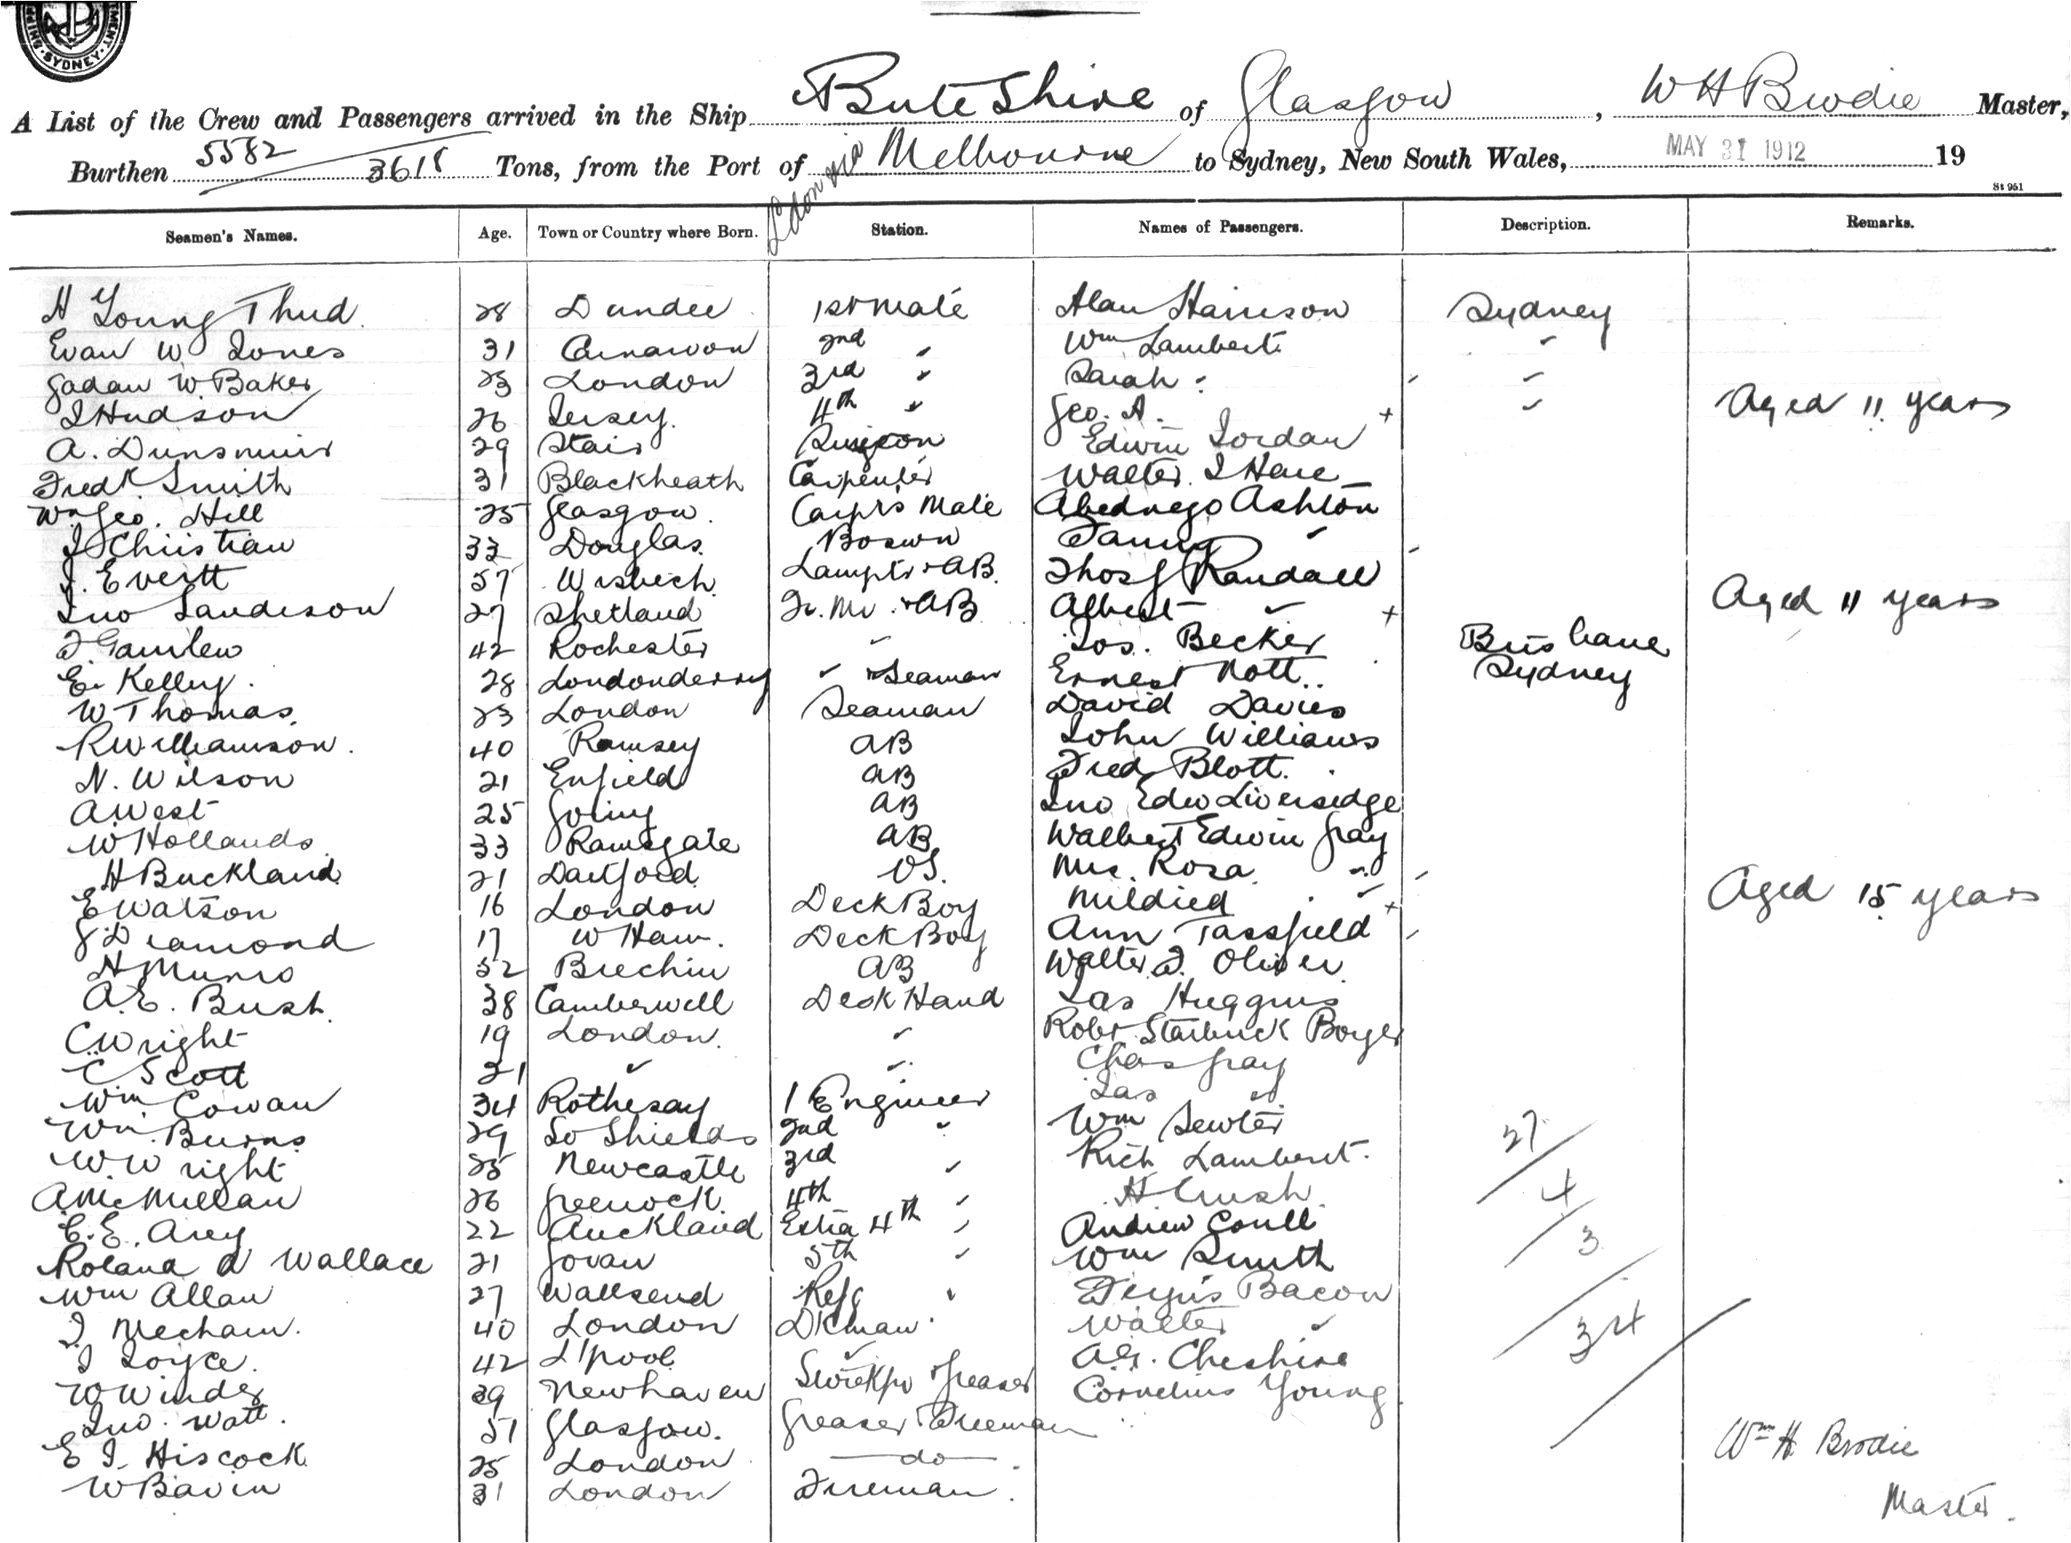 SYDNEY
A List of the Crew and Passengers arrived in the Ship Bute Shire of Glasgow, W H Brodie Master,
Burthen 5582 3618 Tons, from the Port of London via Melbourne to Sydney, New South Wales, MAY 31 1912 19
St 951
Seamen's Names. Age. Town or Country where Born. Station. Names of Passengers. Description. Remarks.
H Young Thud 28 Dundee 1st Mate Alan Harrison Sydney
Evan W Jones 31 Carnarvon 2nd " Wm Lambert "
W. Baker 23 London 3rd " Sarah " "
J Hudson 26 Jersey 4th " Geo. A. + " Aged 11 years
A. Dunsmuir 29 Stair Surgeon Edwin Jordan
Fredk Smith 31 Blackheath Carpenter Walter J Hare
Wm Geo. Hill 25 Glasgow Carprs Mate Abednego Ashton
J Christian 33 Douglas Boswn Fanny "
J. Everett 57 Wisbech Lamptr + AB Thos J Randall
Jno Sandison 27 Shetland + AB Albert " + Aged 11 years
42 Rochester " Jos. Becker Brisbane
E. Kelly. 28 Londonderry " Seaman Ernest Nott. Sydney
W Thomas 23 London Seaman David Davies
R Williamson. 40 Ramsey AB John Williams
N. Wilson 21 Enfield AB Fred Blott.
A West 25 Goring AB Jno Edw Liversedge
W Hollands 33 Ramsgate AB Edwin Gray
H Buckland 21 Dartford OS. Mrs. Rosa "
E Watson 16 London Deck Boy Mildred " + Aged 15 years
G Diamond 17 W Ham. Deck Boy Ann Tassfield
H Munro 52 Brechin AB Walter J. Oliver
A. E. Bush 38 Camberwell Deck Hand Jas Huggins
C Wright 19 London " Robt Starbuck Boyer
C Scott 21 " " Chas Gray
Wm Cowan 34 Rothesay 1 Engineer Jas "
Wm. Burns 29 So Shields 2nd " Wm Sewter 27
W Wright 25 Newcastle 3rd " Rich Lambert.
A McMillan 26 Greenock 4th " H Crush 4
C. E. Arey 22 Auckland Extra 4th " Andrew Coull
Roland D Wallace 21 Govan 5th " Wm Smith 3
Wm Allan 27 Wallsend Refg " Bacon
J Mecham. 40 London Dkman Walter " 34
J Joyce. 42 L'pool " A.G. Cheshire
W Winder 39 Newhaven Storekpr + Greaser Cornelius Young
Jno. Watt. 51 Glasgow. Greaser + Fireman
E J Hiscock 25 London do Wm H Brodie
W Bavin 31 London Fireman. Master.